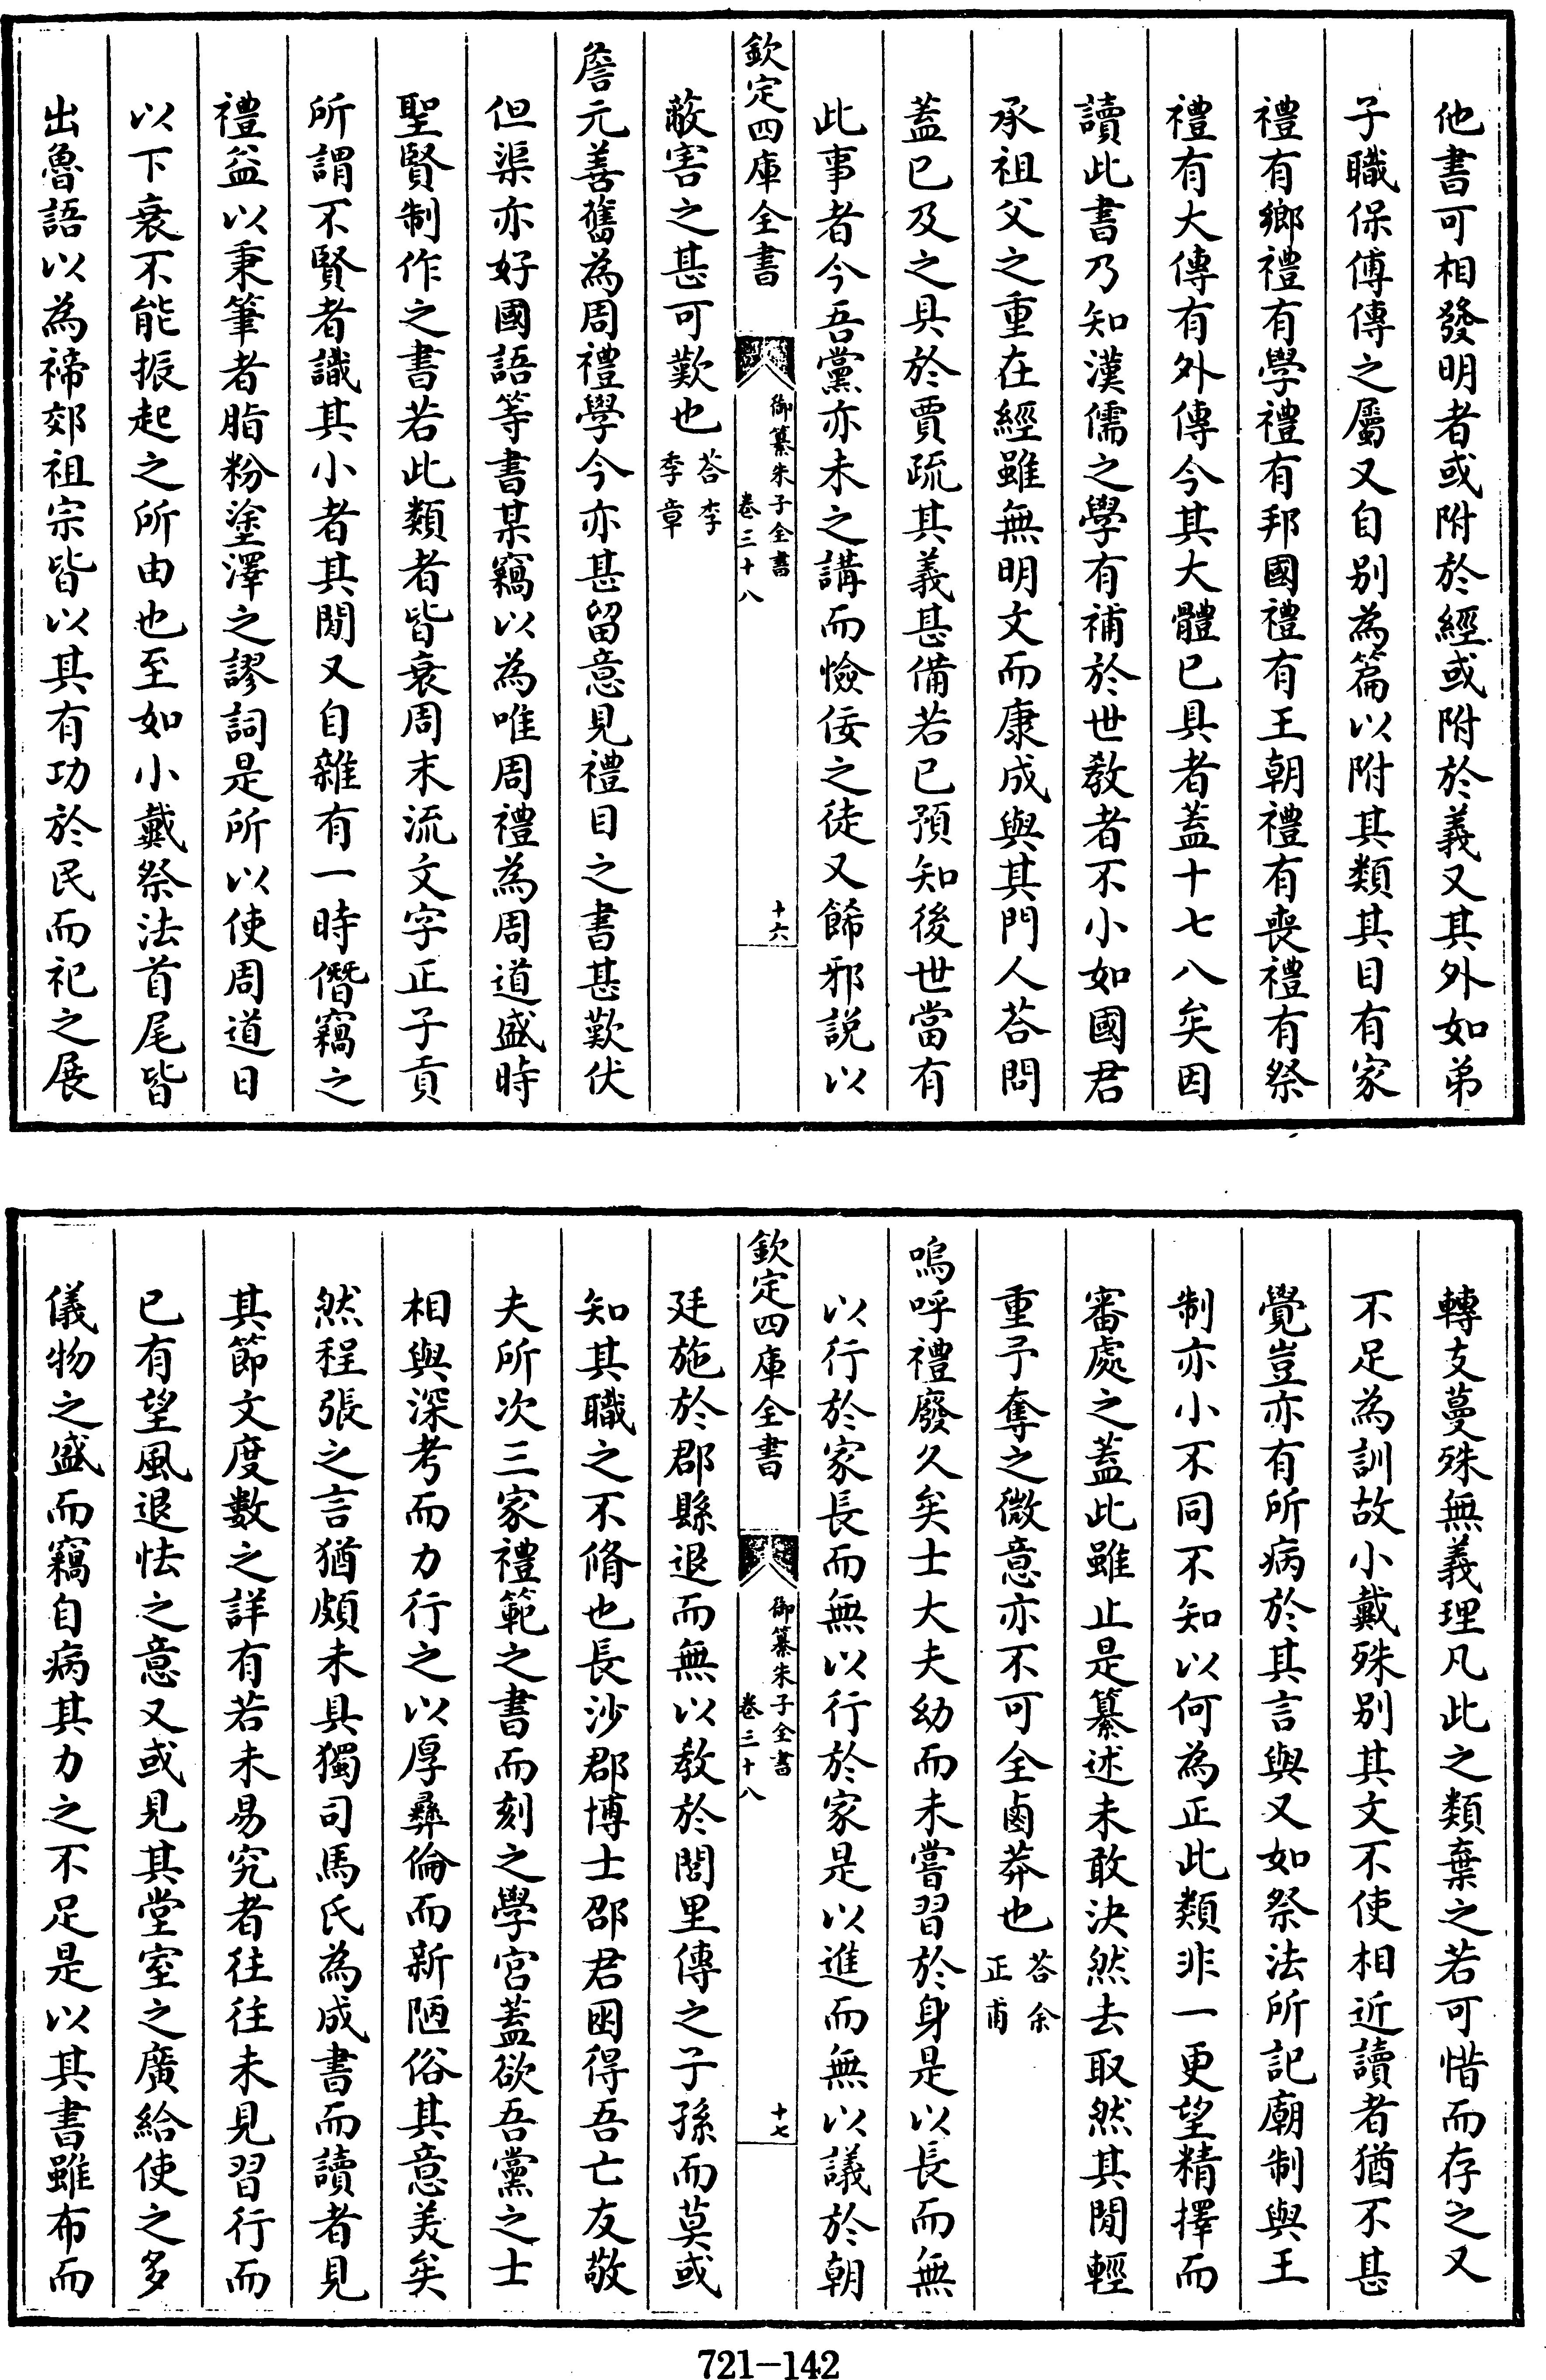 他書可相發明者或附於經或附於義又其外如弟
子職保傅傳之屬又自别為篇以附其類其目有家
禮有鄉禮有學禮有邦國禮有王朝禮有喪禮有祭
禮有大傳有外傳今其大體已具者蓋十七八矣因
讀此書乃知漢儒之學有補於世教者不小如國君
承祖父之重在經雖無明文而康成與其門人荅問
蓋已及之具於賈疏其義甚備若已預知後世當有
此事者今吾黨亦未之講而憸佞之徒又飾邪説以
欽定四庫全書
御纂朱子全書
卷三十八
十六
蔽害之甚可歎也荅李季章
詹元善舊為周禮學今亦甚留意見禮目之書甚歎伏
但渠亦好國語等書某竊以為唯周禮為周道盛時
聖賢制作之書若此類者皆衰周末流文字正子貢
所謂不賢者識其小者其間又自雜有一時僭竊之
禮益以秉筆者脂粉塗澤之謬詞是所以使周道日
以下衰不能振起之所由也至如小戴祭法首尾皆
出魯語以為禘郊祖宗皆以其有功於民而祀之展
轉支蔓殊無義理凡此之類棄之若可惜而存之又
不足為訓故小戴殊别其文不使相近讀者猶不甚
覺豈亦有所病於其言與又如祭法所記廟制與王
制亦小不同不知以何為正此類非一更望精擇而
審處之蓋此雖止是纂述未敢決然去取然其間輕
重予奪之微意亦不可全鹵莽也荅余正甫
嗚呼禮廢久矣士大夫幼而未嘗習於身是以長而無
以行於家長而無以行於家是以進而無以議於朝
欽定四庫全書
御纂朱子全書
卷三十八
十七
廷施於郡縣退而無以教於閭里傳之子孫而莫或
知其職之不脩也長沙郡博士邵君囦得吾亡友敬
夫所次三家禮範之書而刻之學宮蓋欲吾黨之士
相與深考而力行之以厚彞倫而新陋俗其意美矣
然程張之言猶頗未具獨司馬氏為成書而讀者見
其節文度數之詳有若未易究者往往未見習行而
已有望風退怯之意又或見其堂室之廣給使之多
儀物之盛而竊自病其力之不足是以其書雖布而
721-142